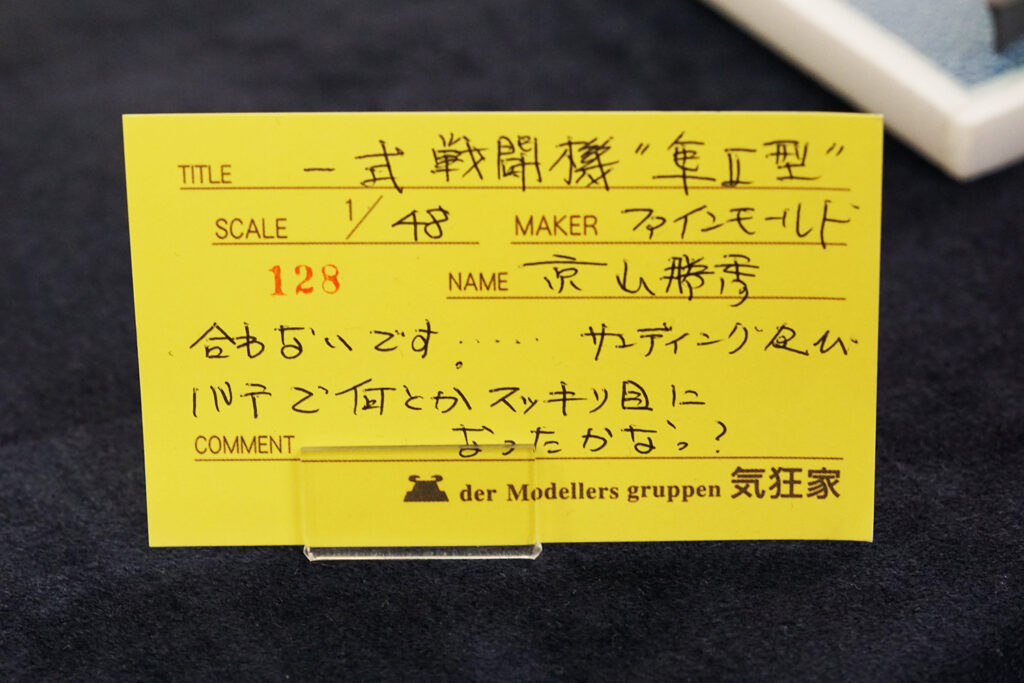 TITLE 一式戦闘機"隼Ⅱ型"
SCALE 1/48 MAKER ファインモールド
128 NAME 京山勝秀
合わないです。‥‥‥ サンディング及び
パテで何とかスッキリ目に
COMMENT なったかなっ?
der Modellers gruppen 気狂家